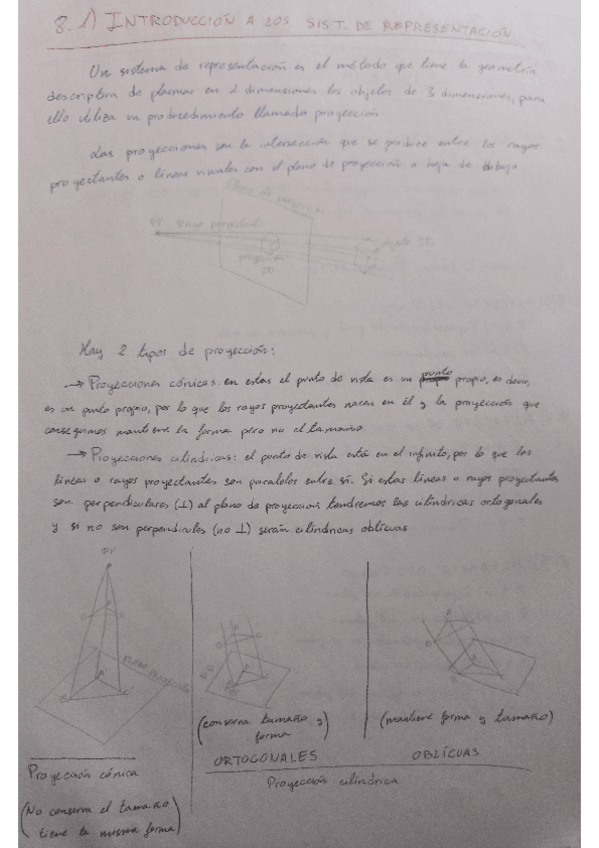 8. 1) INTRODUCCIÓN A LOS SIST. DE REPRESENTACIÓN
Un sistema de representación es el método que tiene la geometría
descriptiva de plasmar en 2 dimensiones los objetos de 3 dimensiones, para
ello utiliza un procedimiento llamado proyección.
Las proyecciones son la intersección que se produce entre los rayos
proyectantes o líneas visuales con el plano de proyección o hoja de dibujo
Plano de proyección
PV Rayo proyectante
objeto 3D
proyección
2D
Hay 2 tipos de proyección:
→ Proyecciones cónicas: en estas el punto de vista es un punto propio, es decir,
es un punto propio, por lo que los rayos proyectantes nacen en él y la proyección que
conseguimos mantiene la forma pero no el tamaño.
→ Proyecciones cilíndricas: el punto de vista está en el infinito, por lo que las
líneas o rayos proyectantes son paralelos entre sí. Si estas líneas o rayos proyectantes
son perpendiculares (⊥) al plano de proyección tendremos las cilíndricas ortogonales
y si no son perpendiculares (no ⊥) serán cilíndricas oblicuas
PV
(conserva tamaño y
forma)
(mantiene forma y tamaño)
ORTOGONALES
OBLÍCUAS
Proyección cónica
Proyección cilíndrica
(No conserva el tamaño
tiene la misma forma)